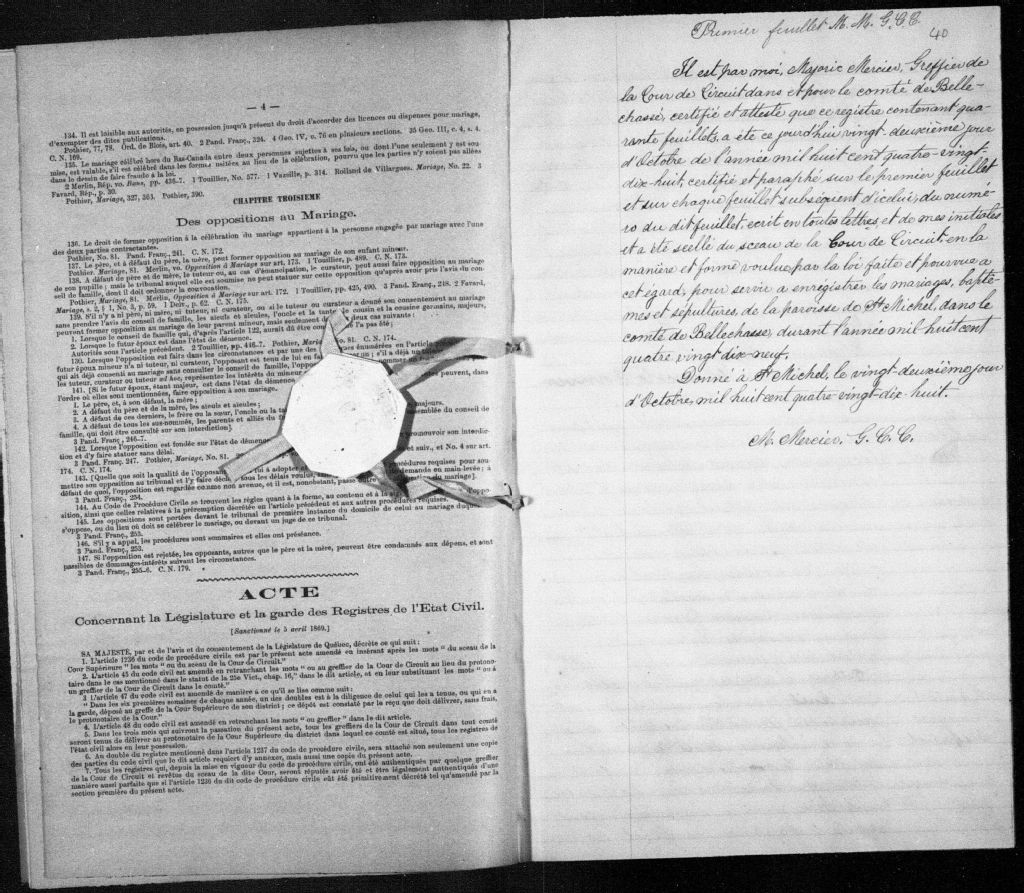 — 4 —
134. Il est loisible aux autorités, en possession jusqu'à présent du droit d'accorder des licences ou dispenses pour mariage,
d'exempter des dites publications.
Pothier, 77, 78. Ord. de Blois, art. 40. 2 Pand. Franç., 324. 4 Geo. IV, c. 76 en plusieurs sections. 35 Geo. III, c. 4, s. 4.
C. N. 169.
135. Le mariage célébré hors du Bas-Canada entre deux personnes sujettes à ses lois, ou dont l'une seulement y est sou-
mise, est valable, s'il est célébré dans les formes usitées au lieu de la célébration, pourvu que les parties n'y soient pas allées
dans le dessein de faire fraude à la loi.
2 Merlin, Rép. vo. Bans, pp. 436-7. 1 Touillier, No. 577. 1 Vazille, p. 314. Rolland de Villargues, Mariage, No. 22. 3
Favard, Rép., p. 39.
Pothier, Mariage, 327, 363. Pothier, 390.
CHAPITRE TROISIEME
Des oppositions au Mariage.
136. Le droit de former opposition à la célébration du mariage appartient à la personne engagée par mariage avec l'une
des deux parties contractantes.
Pothier, No. 81. Pand. Franç., 241. C. N. 172.
137. Le père, et à défaut du père, la mère, peut former opposition au mariage de son enfant mineur.
Pothier. Mariage, 81. Merlin, vo. Opposition à Mariage sur art. 173. 1 Touillier, p. 489. C. N. 173.
138. A défaut de père et de mère, le tuteur ou, au cas d'émancipation, le curateur, peut aussi faire opposition au mariage
de son pupille; mais le tribunal auquel elle est soumise ne peut statuer sur cette opposition qu'après avoir pris l'avis du con-
seil de famille, dont il doit ordonner la convocation.
Pothier, Mariage, 81. Merlin, Opposition à Mariage sur art. 172. 1 Touillier, pp. 425, 490. 3 Pand. Franç., 248. 2 Favard,
Mariage, s. 2, § 1, No. 3, p. 59. 1 Delv., p. 62. C. N. 175.
139. S'il n'y a ni père, ni mère, ni tuteur, ni curateur, ou si le tuteur ou curateur a donné son consentement au mariage
sans prendre l'avis du conseil de famille, les aïeuls et aïeules, l'oncle et la tante, le cousin et la cousine germains, majeurs,
peuvent former opposition au mariage de leur parent mineur, mais seulement dans les deux cas suivants:
1. Lorsque le conseil de famille qui, d'après l'article 122, aurait dû être consulté ne l'a pas été;
2. Lorsque le futur époux est dans l'état de démence.
Autorités sous l'article précédent. 2 Touillier, pp. 416-7. Pothier, No. 81. C. N. 174.
Lorsque l'opposition est faite dans les circonstances et par une des énumérées en l'article
futur époux mineur n'a ni tuteur, ni curateur, l'opposant est tenu de lui en s'il a déjà un
qui ait déjà consenti au mariage sans consulter le conseil de famille,
tuteur ad hoc, représenter les intérêts du mineur
141. [Si le futur époux, étant majeur, est dans l'état de démence peuvent, dans
l'ordre où elles sont mentionnées, faire opposition à son mariage.
1. Le père, et, à son défaut, la mère;
2. A défaut du père et de la mère, les aïeuls et aïeules;
3. A défaut de ces derniers, le frère ou la sœur, l'oncle ou la majeurs.
4. A défaut de tous les sus-nommés, les parents et alliés du assemblée du conseil de
famille, qui doit être consulté sur son interdiction]
3 Pand. Franç., 246-7.
142. Lorsque l'opposition est fondée sur l'état de démence promouvoir son interdic-
tion et d'y faire statuer sans délai.
3 Pand. Franç. 247. Pothier, Mariage, No. 81. et suiv., et No. 4 sur art.
174. C. N. 174.
143. [Quelle que soit la qualité de l'opposant à adopter procédures requises pour sou-
mettre son opposition au tribunal et l'y faire sous les délais demande en main-levée; à
défaut de quoi, l'opposition est regardée comme non avenue, et il est, nonobstant, passé outre du mariage].
3 Pand. Franç., 254.
144. Au Code de Procédure Civile se trouvent les règles quant à la forme, au contenu et à la d'oppo-
sition, ainsi que celles relatives à la péremption décrétée en l'article précédent et aux autres procédures requises.
145. Les oppositions sont portées devant le tribunal de première instance du domicile de celui au mariage duquel
s'oppose, ou du lieu où doit se célébrer le mariage, ou devant un juge de ce tribunal.
3 Pand. Franç., 253.
146. S'il y a appel, les procédures sont sommaires et elles ont préséance.
3 Pand. Franç., 253.
147. Si l'opposition est rejetée, les opposants, autres que le père et la mère, peuvent être condamnés aux dépens, et sont
passibles de dommages-intérêts suivant les circonstances.
3 Pand. Franç., 255-6. C. N. 179.
ACTE
Concernant la Législature et la garde des Registres de l'Etat Civil.
[Sanctionné le 5 avril 1869.]
SA MAJESTÉ, par et de l'avis et du consentement de la Législature de Québec, décrète ce qui suit:
1. L'article 1236 du code de procédure civile est par le présent acte amendé en insérant après les mots "du sceau de la
Cour Supérieure" les mots "ou du sceau de la Cour de Circuit."
2. L'article 45 du code civil est amendé en retranchant les mots "ou au greffier de la Cour de Circuit au lieu du protono-
taire dans le cas mentionné dans le statut de la 25e Vict., chap. 16," dans le dit article, et en leur substituant les mots "ou à
un greffier de la Cour de Circuit dans le comté."
3. L'article 47 du code civil est amendé de manière à ce qu'il se lise comme suit:
"Dans les six premières semaines de chaque année, un des doubles est à la diligence de celui qui les a tenus, ou qui en a
la garde, déposé au greffe de la Cour Supérieure de son district; ce dépôt est constaté par le reçu que doit délivrer, sans frais,
le protonotaire de la Cour."
4. L'article 48 du code civil est amendé en retranchant les mots "ou greffier" dans le dit article.
5. Dans les trois mois qui suivront la passation du présent acte, tous les greffiers de la Cour de Circuit dans tout comté
seront tenus de délivrer au protonotaire de la Cour Supérieure du district dans lequel ce comté est situé, tous les registres de
l'état civil alors en leur possession.
6. Au double du registre mentionné dans l'article 1237 du code de procédure civile, sera attaché non seulement une copie
des parties du code civil que le dit article requiert d'y annexer, mais aussi une copie du présent acte.
7. Tous les registres qui, depuis la mise en vigueur du code de procédure civile, ont été authentiqués par quelque greffier
de la Cour de Circuit et revêtus du sceau de la dite Cour, seront réputés avoir été et être légalement authentiqués d'une
manière aussi parfaite que si l'article 1236 du dit code de procédure civile eût été primitivement décrété tel qu'amendé par la
section première du présent acte.
Premier feuillet M. M. G.C.C.
40
Il est par moi, Majoric Mercier, Greffier de
la Cour de Circuit dans et pour le comté de Belle-
chasse, certifié et attesté que ce registre contenant qua-
rante feuillets, a été ce jourd'hui vingt-deuxième jour
d'Octobre de l'année mil huit cent quatre-vingt-
dix-huit, certifié et paraphé sur le premier feuillet
et sur chaque feuillet subséquent d'icelui, du numé-
ro du dit feuillet, écrit en toutes lettres et de mes initiales
et a été scellé du sceau de la Cour de Circuit en la
manière et forme voulue par la loi faite et pourvue à
cet égard, pour servir à enregistrer les mariages, baptê-
mes et sépultures, de la paroisse de St Michel, dans le
comté de Bellechasse, durant l'année mil huit cent
quatre vingt-dix-neuf.
Donné à St Michel, le vingt-deuxième jour
d'Octobre, mil huit cent quatre-vingt-dix-huit.
M. Mercier, G. C. C.